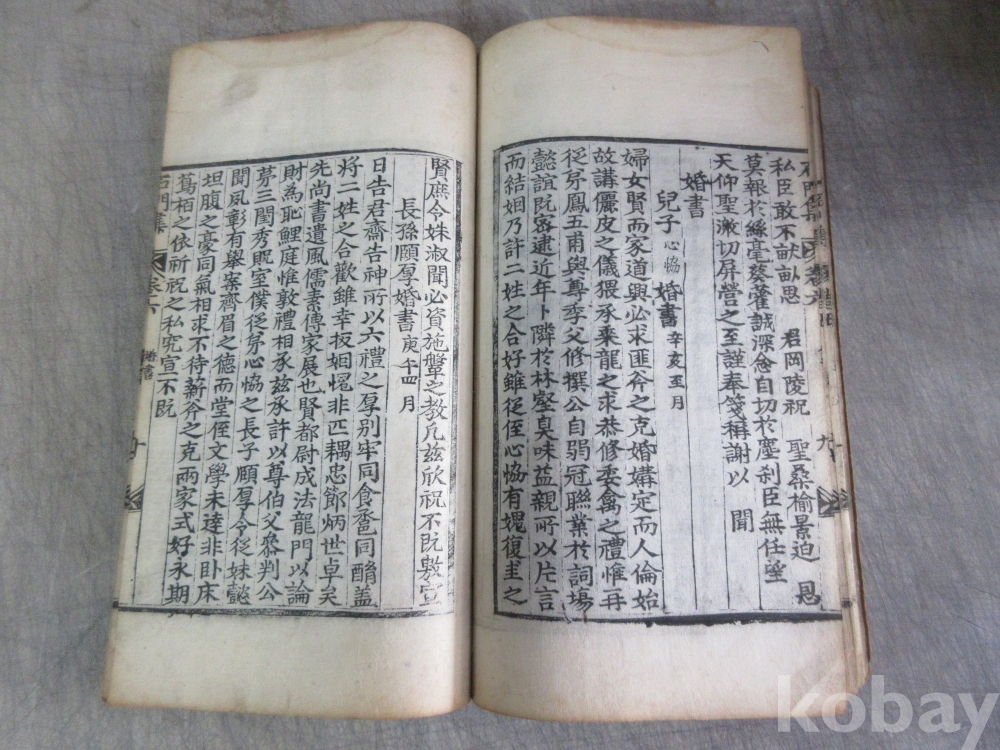 私臣敢不猷畝思 君岡陵祝 聖桑榆景迫 恩
莫報於絲毫葵藿誠深愈自切於塵刹臣無任望
天仰聖激切屏營之至謹奉箋稱謝以 聞
婚書
兒子心恊婚書 辛亥至月
婦女賢而家道興必求匪斧之克婚媾定而人倫始
故講儷皮之儀猥承乘龍之求恭修委禽之禮惟再
從㐧鳳五甫與尊季父修撰公自弱冠聯業於詞場
懿誼旣密逮近年卜隣於林壑臭味益親所以片言
而結姻乃許二姓之合好雖從侄心恊有媿復圭之
賢庶令妹淑聞必資施鞶之教凡玆欣祝不旣敷宣
長孫頤厚婚書 庚午四月
日告君齋告神所以六禮之厚別牢同食卺同酳盖
將二姓之合歡雖幸扳姻愰非匹耦忠節炳世卓矣
先尚書遺風儒素傳家展也賢都尉成法龍門以論
財為恥鯉庭惟敦禮相承玆承許以尊伯父叅判公
㐧三閏秀貺室僕從㐧心恊之長子頤厚令從妹懿
聞夙彰有擧案齊眉之德而堂侄文學未達非卧床
坦腹之豪同氣相求不待薪斧之克兩家式好永期
蔦栢之依祈祝之私究宣不旣
石門集
卷六
婚書
十
石門集
卷六
九
kobay